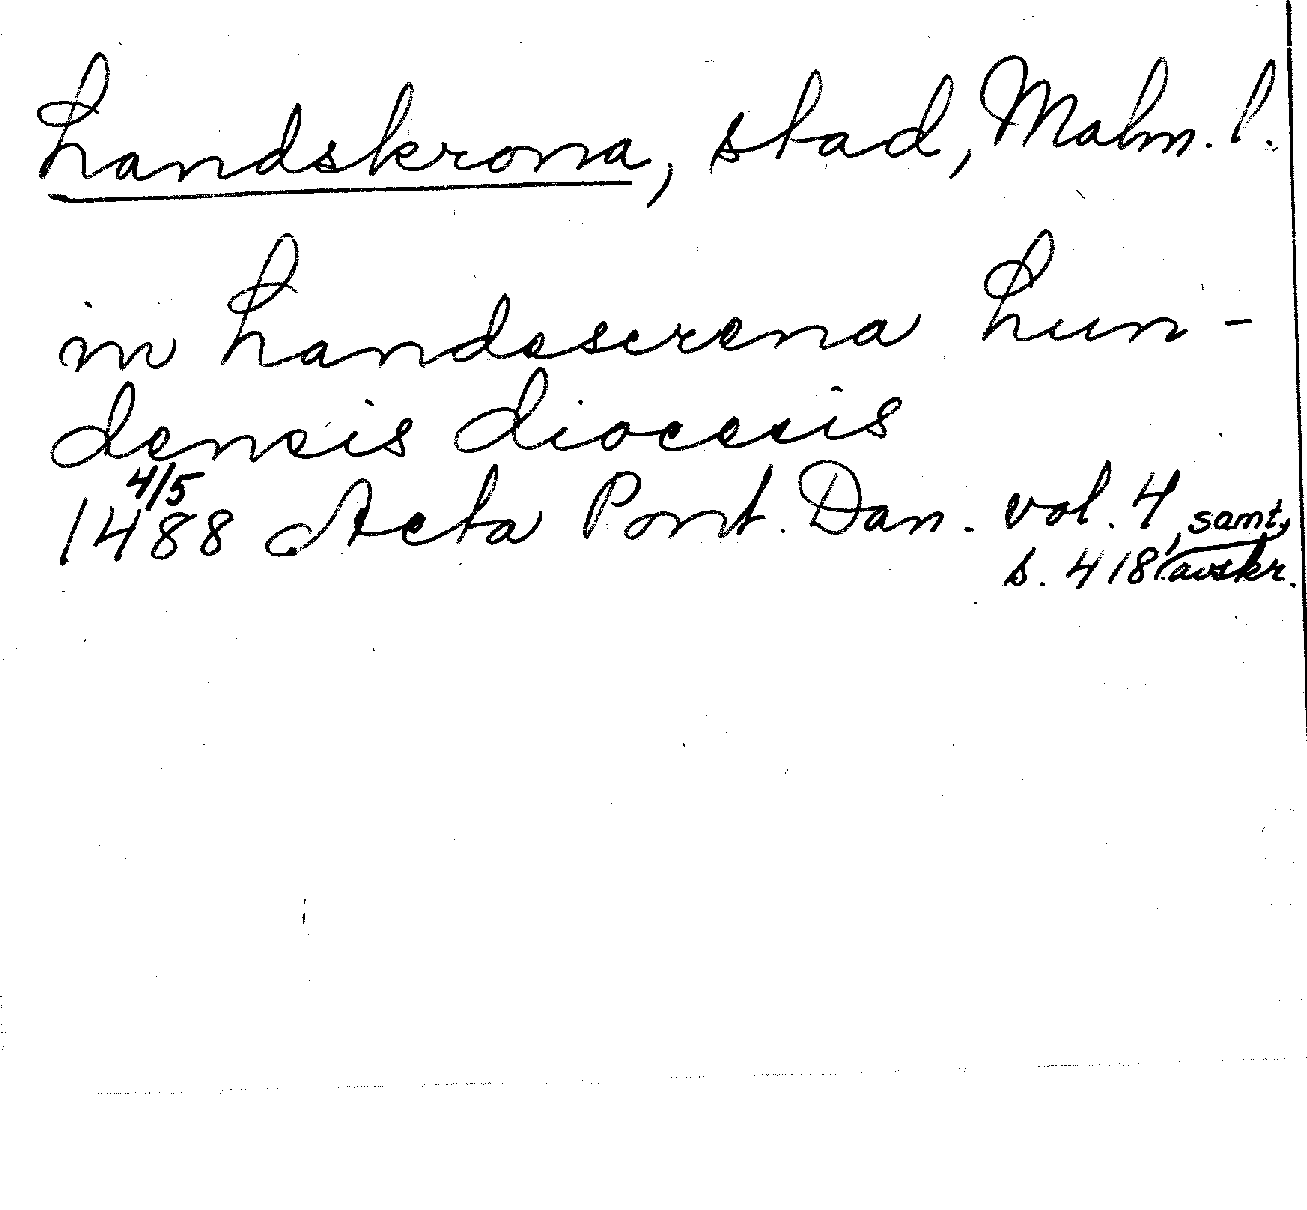 Landskrona, stad, Malm. l.
in Landescrena Lun-
densis diocesis
4/5
1488 Acta Pont. Dan. vol. 4, samt.
s. 418 avskr.